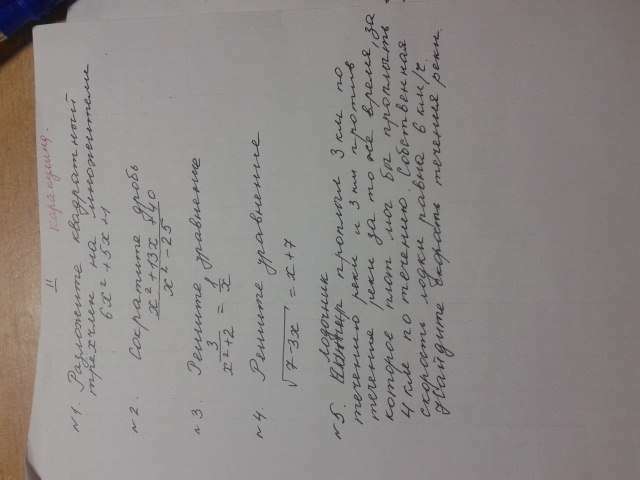 II карандиш.
№1. Разложите квадратный
трёхчлен на множители
6x²+5x+1
№2. Сократите дробь
x²+13x+40
x²-25
№3. Решите уравнение
3/(x²+2) = 1/x
№4. Решите уравнение
√(7-3x) = x+7
лодочник
№5. проплыл 3 км по
течению реки и 3 км против
течения реки за то же время, за
которое плот мог бы проплыть
4 км по течению. Собственная
скорость лодки равна 6 км/ч.
Найдите скорость течения реки.